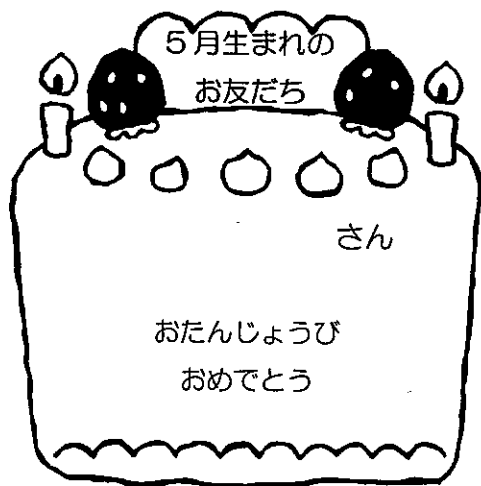 5月生まれの
お友だち
さん
おたんじょうび
おめでとう